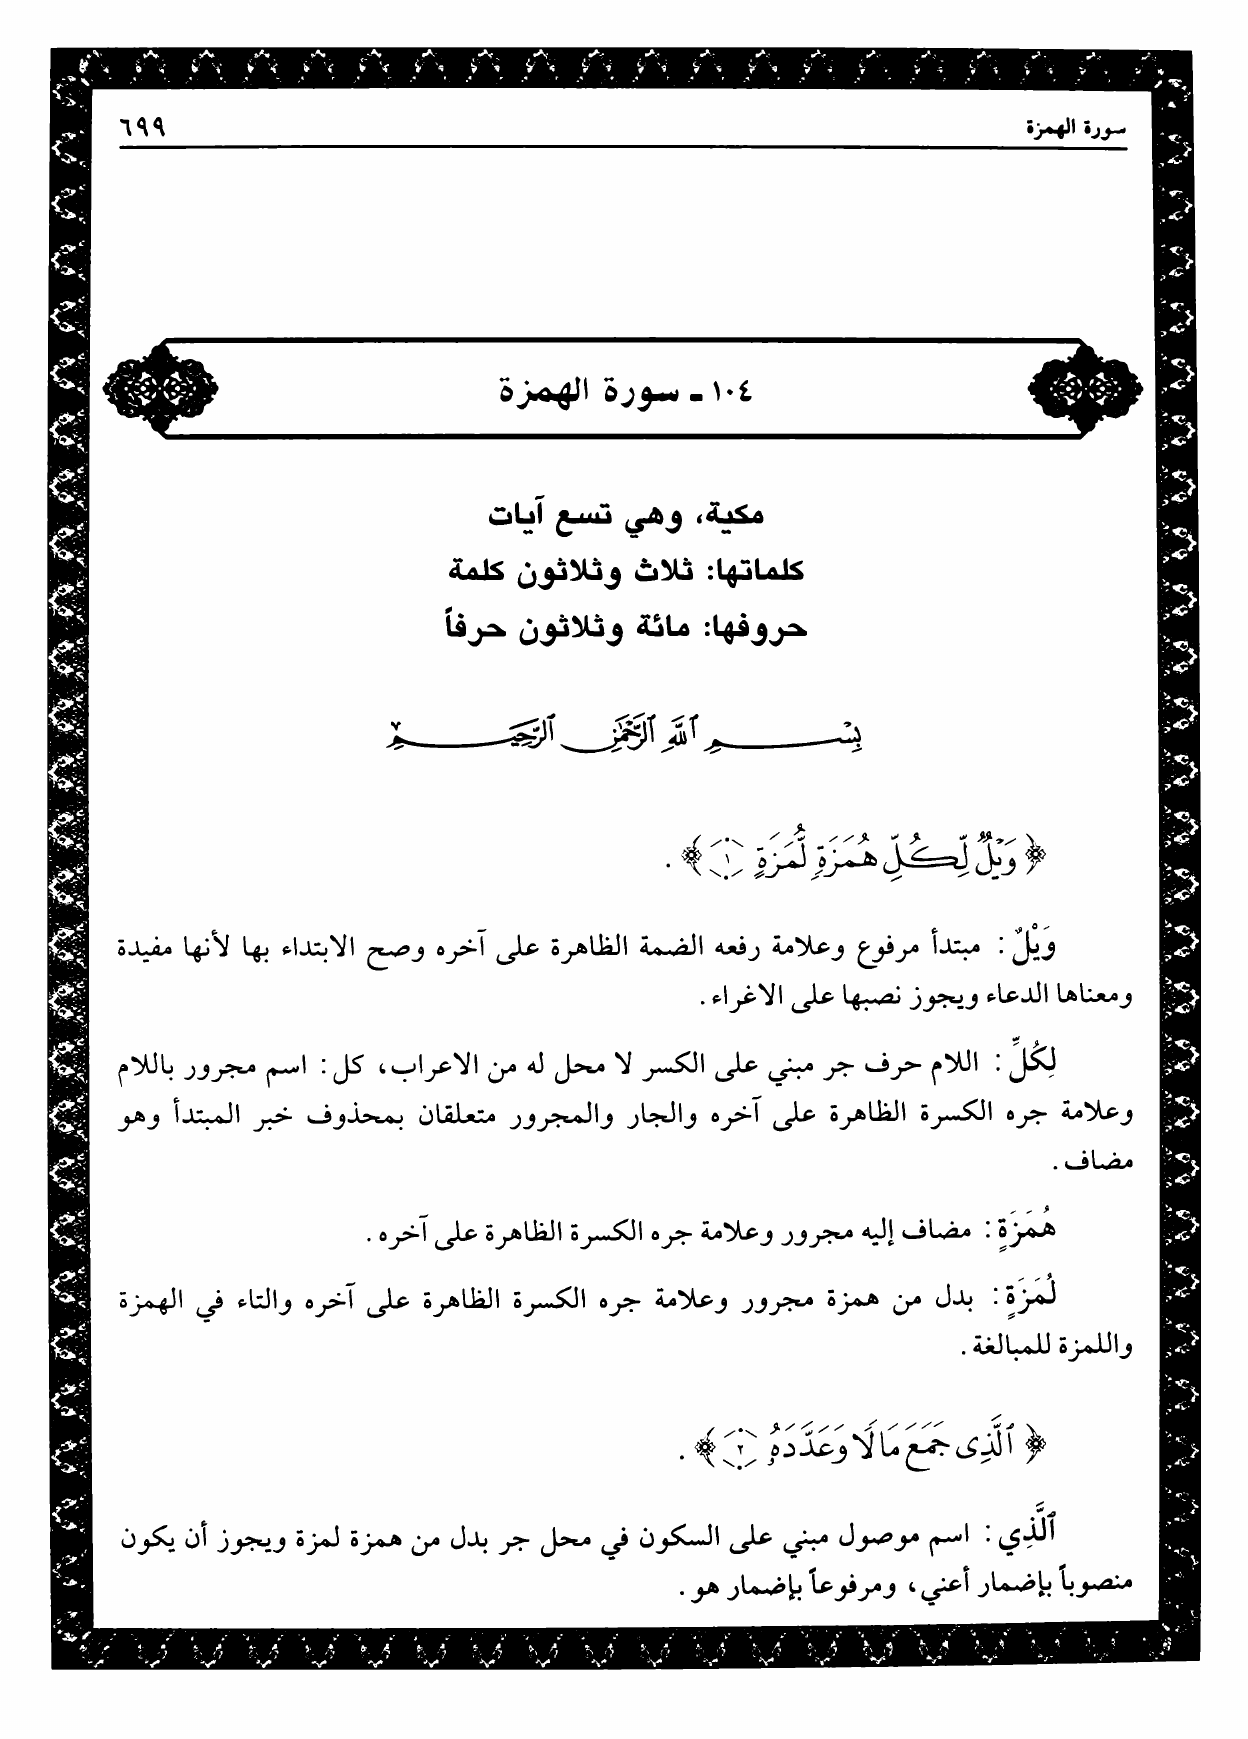 سورة الهمزة
٦٩٩
١٠٤ ـ سورة الهمزة
مكية، وهي تسع آيات
كلماتها: ثلاث وثلاثون كلمة
حروفها: مائة وثلاثون حرفاً
بِسْمِ ٱللَّهِ ٱلرَّحْمَٰنِ ٱلرَّحِيمِ
﴿ وَيْلٌ لِّكُلِّ هُمَزَةٍ لُّمَزَةٍ ١ ﴾ .
وَيْلٌ : مبتدأ مرفوع وعلامة رفعه الضمة الظاهرة على آخره وصح الابتداء بها لأنها مفيدة
ومعناها الدعاء ويجوز نصبها على الاغراء .
لِكُلِّ : اللام حرف جر مبني على الكسر لا محل له من الاعراب، كل : اسم مجرور باللام
وعلامة جره الكسرة الظاهرة على آخره والجار والمجرور متعلقان بمحذوف خبر المبتدأ وهو
مضاف .
هُمَزَةٍ : مضاف إليه مجرور وعلامة جره الكسرة الظاهرة على آخره .
لُمَزَةٍ : بدل من همزة مجرور وعلامة جره الكسرة الظاهرة على آخره والتاء في الهمزة
واللمزة للمبالغة .
﴿ ٱلَّذِى جَمَعَ مَالًا وَعَدَّدَهُۥ ٢ ﴾ .
ٱلَّذِي : اسم موصول مبني على السكون في محل جر بدل من همزة لمزة ويجوز أن يكون
منصوباً بإضمار أعني، ومرفوعاً بإضمار هو .